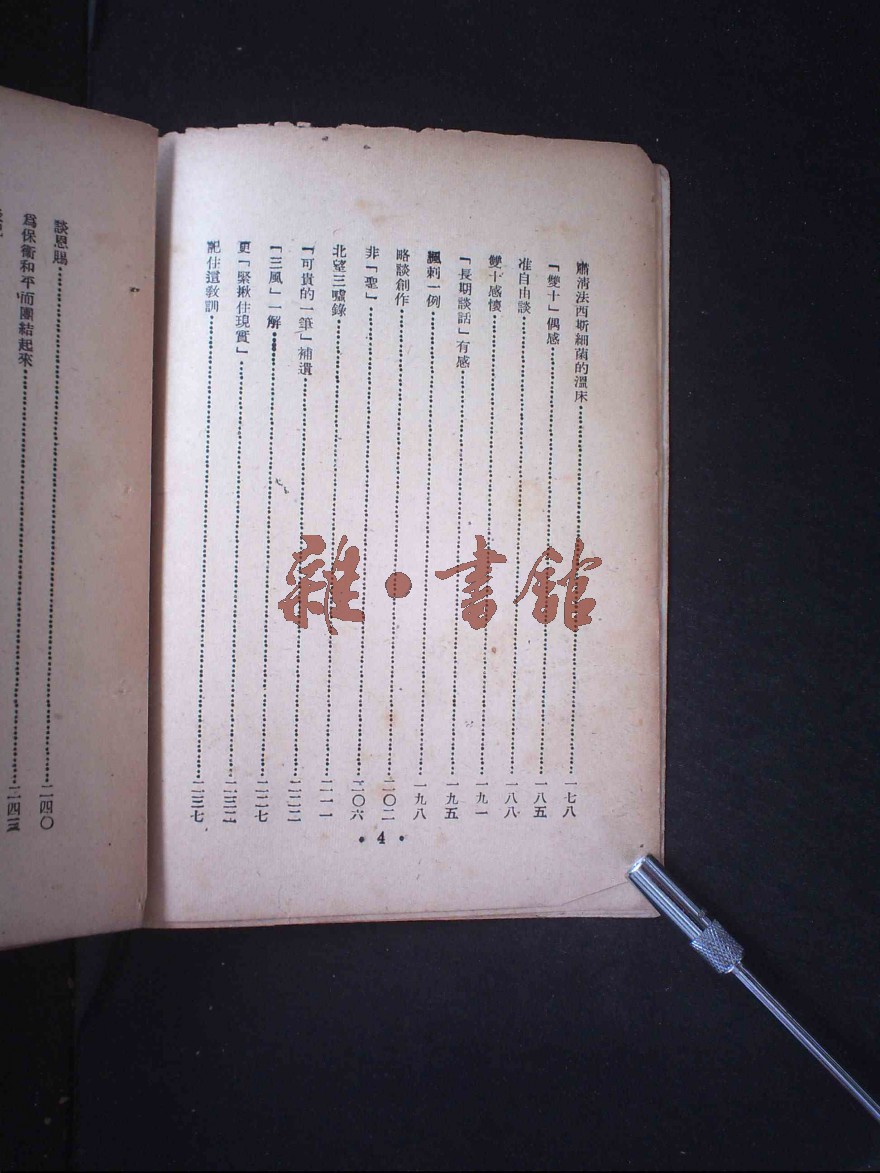 肅淸法西斯細菌的溫床……一七八
「雙十」偶感……一八五
准自由談……一八八
雙十感懷……一九一
「長期談話」有感……一九五
諷刺一例……一九八
略談創作……二〇二
非「聖」……二〇六
北望三噓錄……二一一
「可貴的一筆」補遺……二二二
「三風」一解……二二七
更「緊揪住現實」……二三二
記住這教訓……二三七
• 4 •
談恩賜……二四〇
爲保衞和平而團結起來……二四三
雜•書館